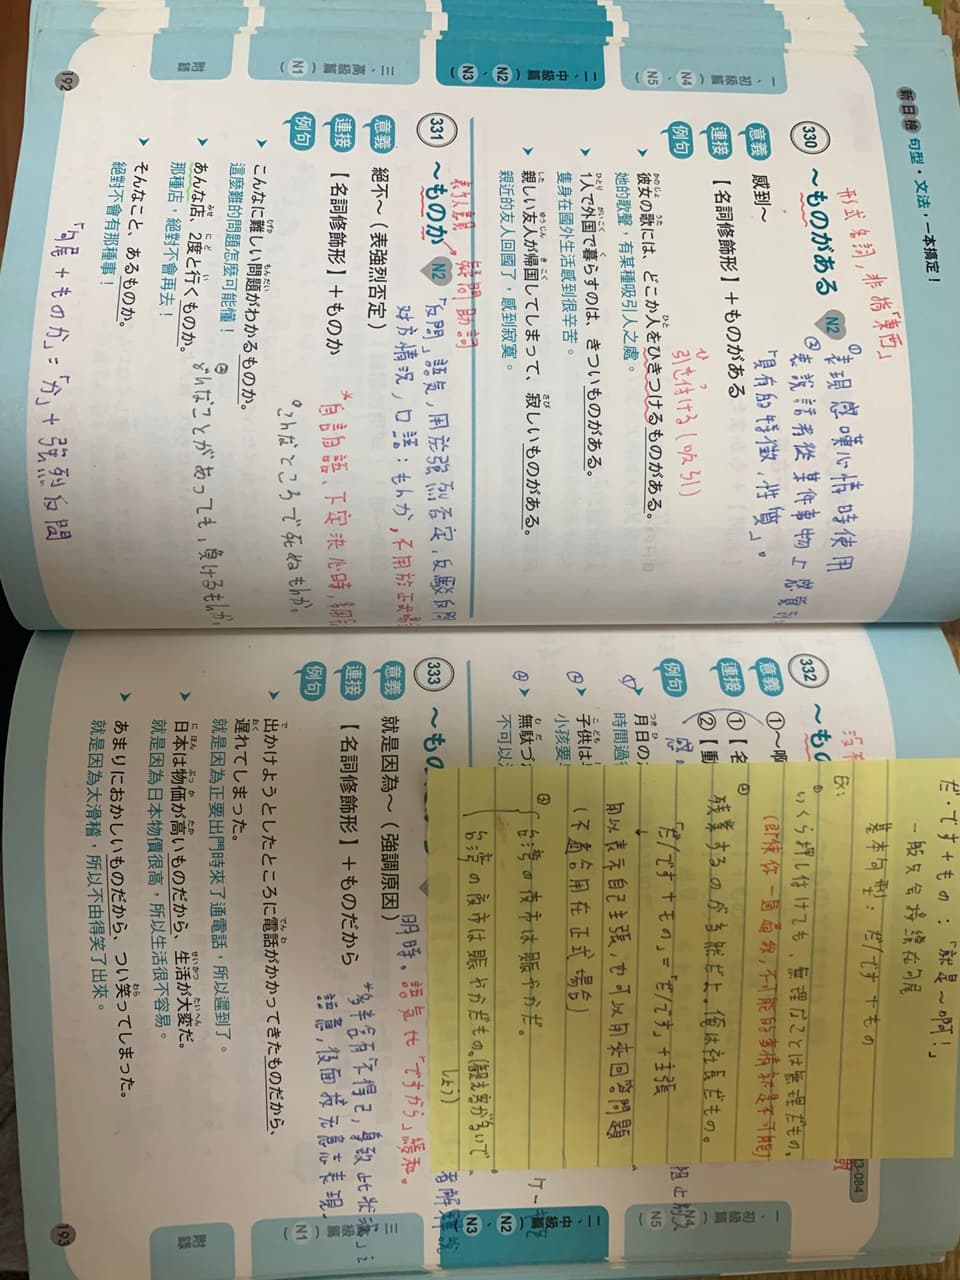 新日檢 句型・文法，一本搞定！
一、初級篇（N4、N5）
二、中級篇（N2、N3）
三、高級篇（N1）
附錄
330 ～ものがある N2
形式名詞，非指「東西」
①表現感嘆心情時使用
②表說話者從某件事物上感覺到
「具有的特徵，性質」。
意義 感到～
連接 【名詞修飾形】＋ものがある
例句
彼女の歌には、どこか人をひきつけるものがある。
引き付ける（吸引）
她的歌聲，有某種吸引人之處。
1人で外国で暮らすのは、きついものがある。
隻身在國外生活感到很辛苦。
親しい友人が帰国してしまって、寂しいものがある。
親近的友人回國了，感到寂寞。
331 ～ものか N2
疑問助詞
「反問」語氣，用於強烈否定，反駁
對方情況，口語：もんか，不用於正式場
意義 絕不～（表強烈否定）
連接 【名詞修飾形】＋ものか
*自言自語、下定決心時，
例句
こんなところで死ぬもんか。
こんなに難しい問題がわかるものか。
這麼難的問題怎麼可能懂！
どんなことがあっても，負けるもんか。
あんな店、2度と行くものか。
那種店，絕對不會再去！
そんなこと、あるものか。
絕對不會有那種事！
「句尾＋ものか」＝「か」＋強烈反問
192
一、初級篇（N4、N5）
二、中級篇（N2、N3）
三、高級篇（N1）
附錄
332 ～も
意義 ①～啊
連接 ①【名
②【動
例句
月日の
時間過
子供は
小孩要
無駄づ
不可以
3-084
だ・です＋もの：「就是～啊！」
一般只會接續在句尾
基本句型：だ/です＋もの
Ex:
①いくら押し付けても、無理なことは無理だもの。
（即使你一直逼我，不可能的事情就是不可能）
②残業するのが当然だよ。俺は社長だもの。
「だ/です＋もの」＝「だ/です」＋主張
用以表示自己主張，也可以用來回答問題
（不適合用在正式場合）
③台湾の夜市は賑やかだ。
台湾の夜市は賑やかだもの。
しょう）
333 ～も
明時。語氣比「ですから」緩和。
意義 就是因為～（強調原因）
連接 【名詞修飾形】＋ものだから
*多半含有「不得已，導致此狀
語意，後面接無意志表現
例句
出かけようとしたところに電話がかかってきたものだから、
遅れてしまった。
就是因為正要出門時來了通電話，所以遲到了。
日本は物価が高いものだから、生活が大変だ。
就是因為日本物價很高，所以生活很不容易。
あまりにおかしいものだから、つい笑ってしまった。
就是因為太滑稽，所以不由得笑了出來。
193